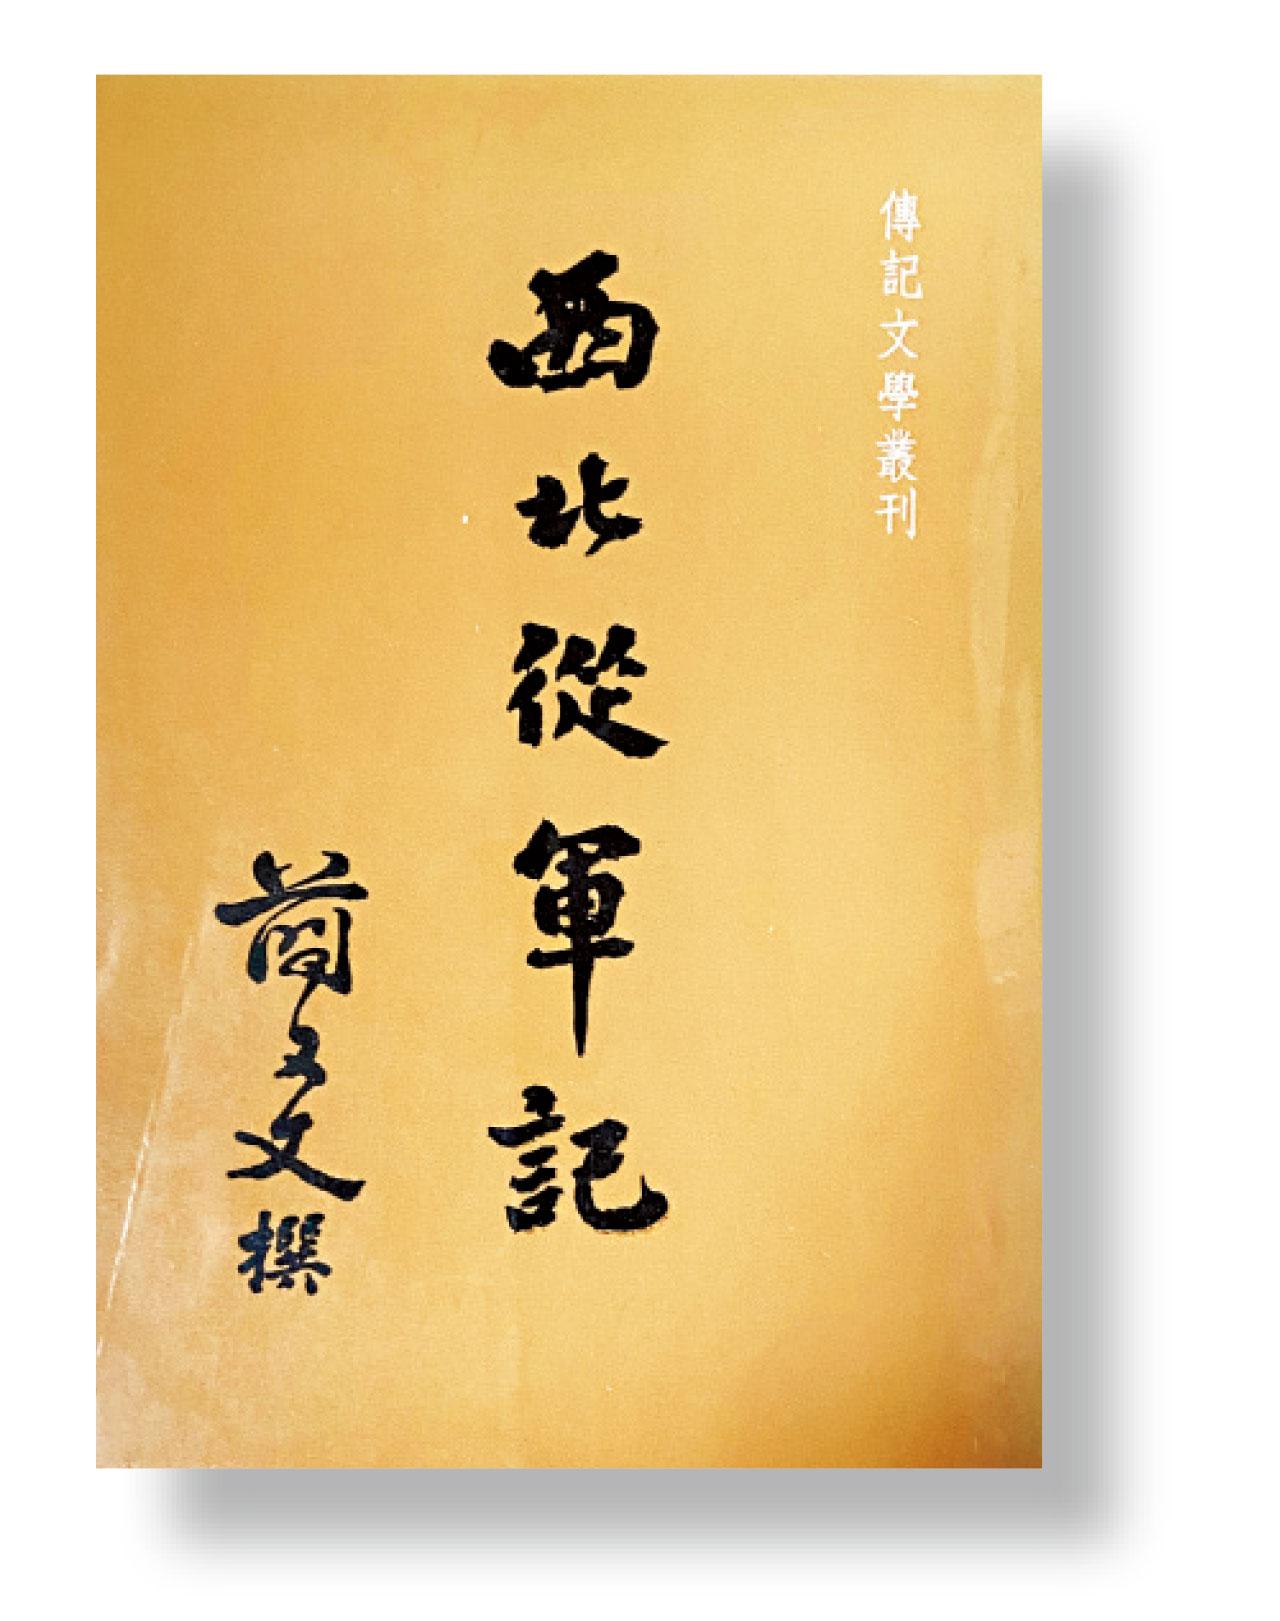 傳記文學叢刊
西北從軍記
簡又文撰